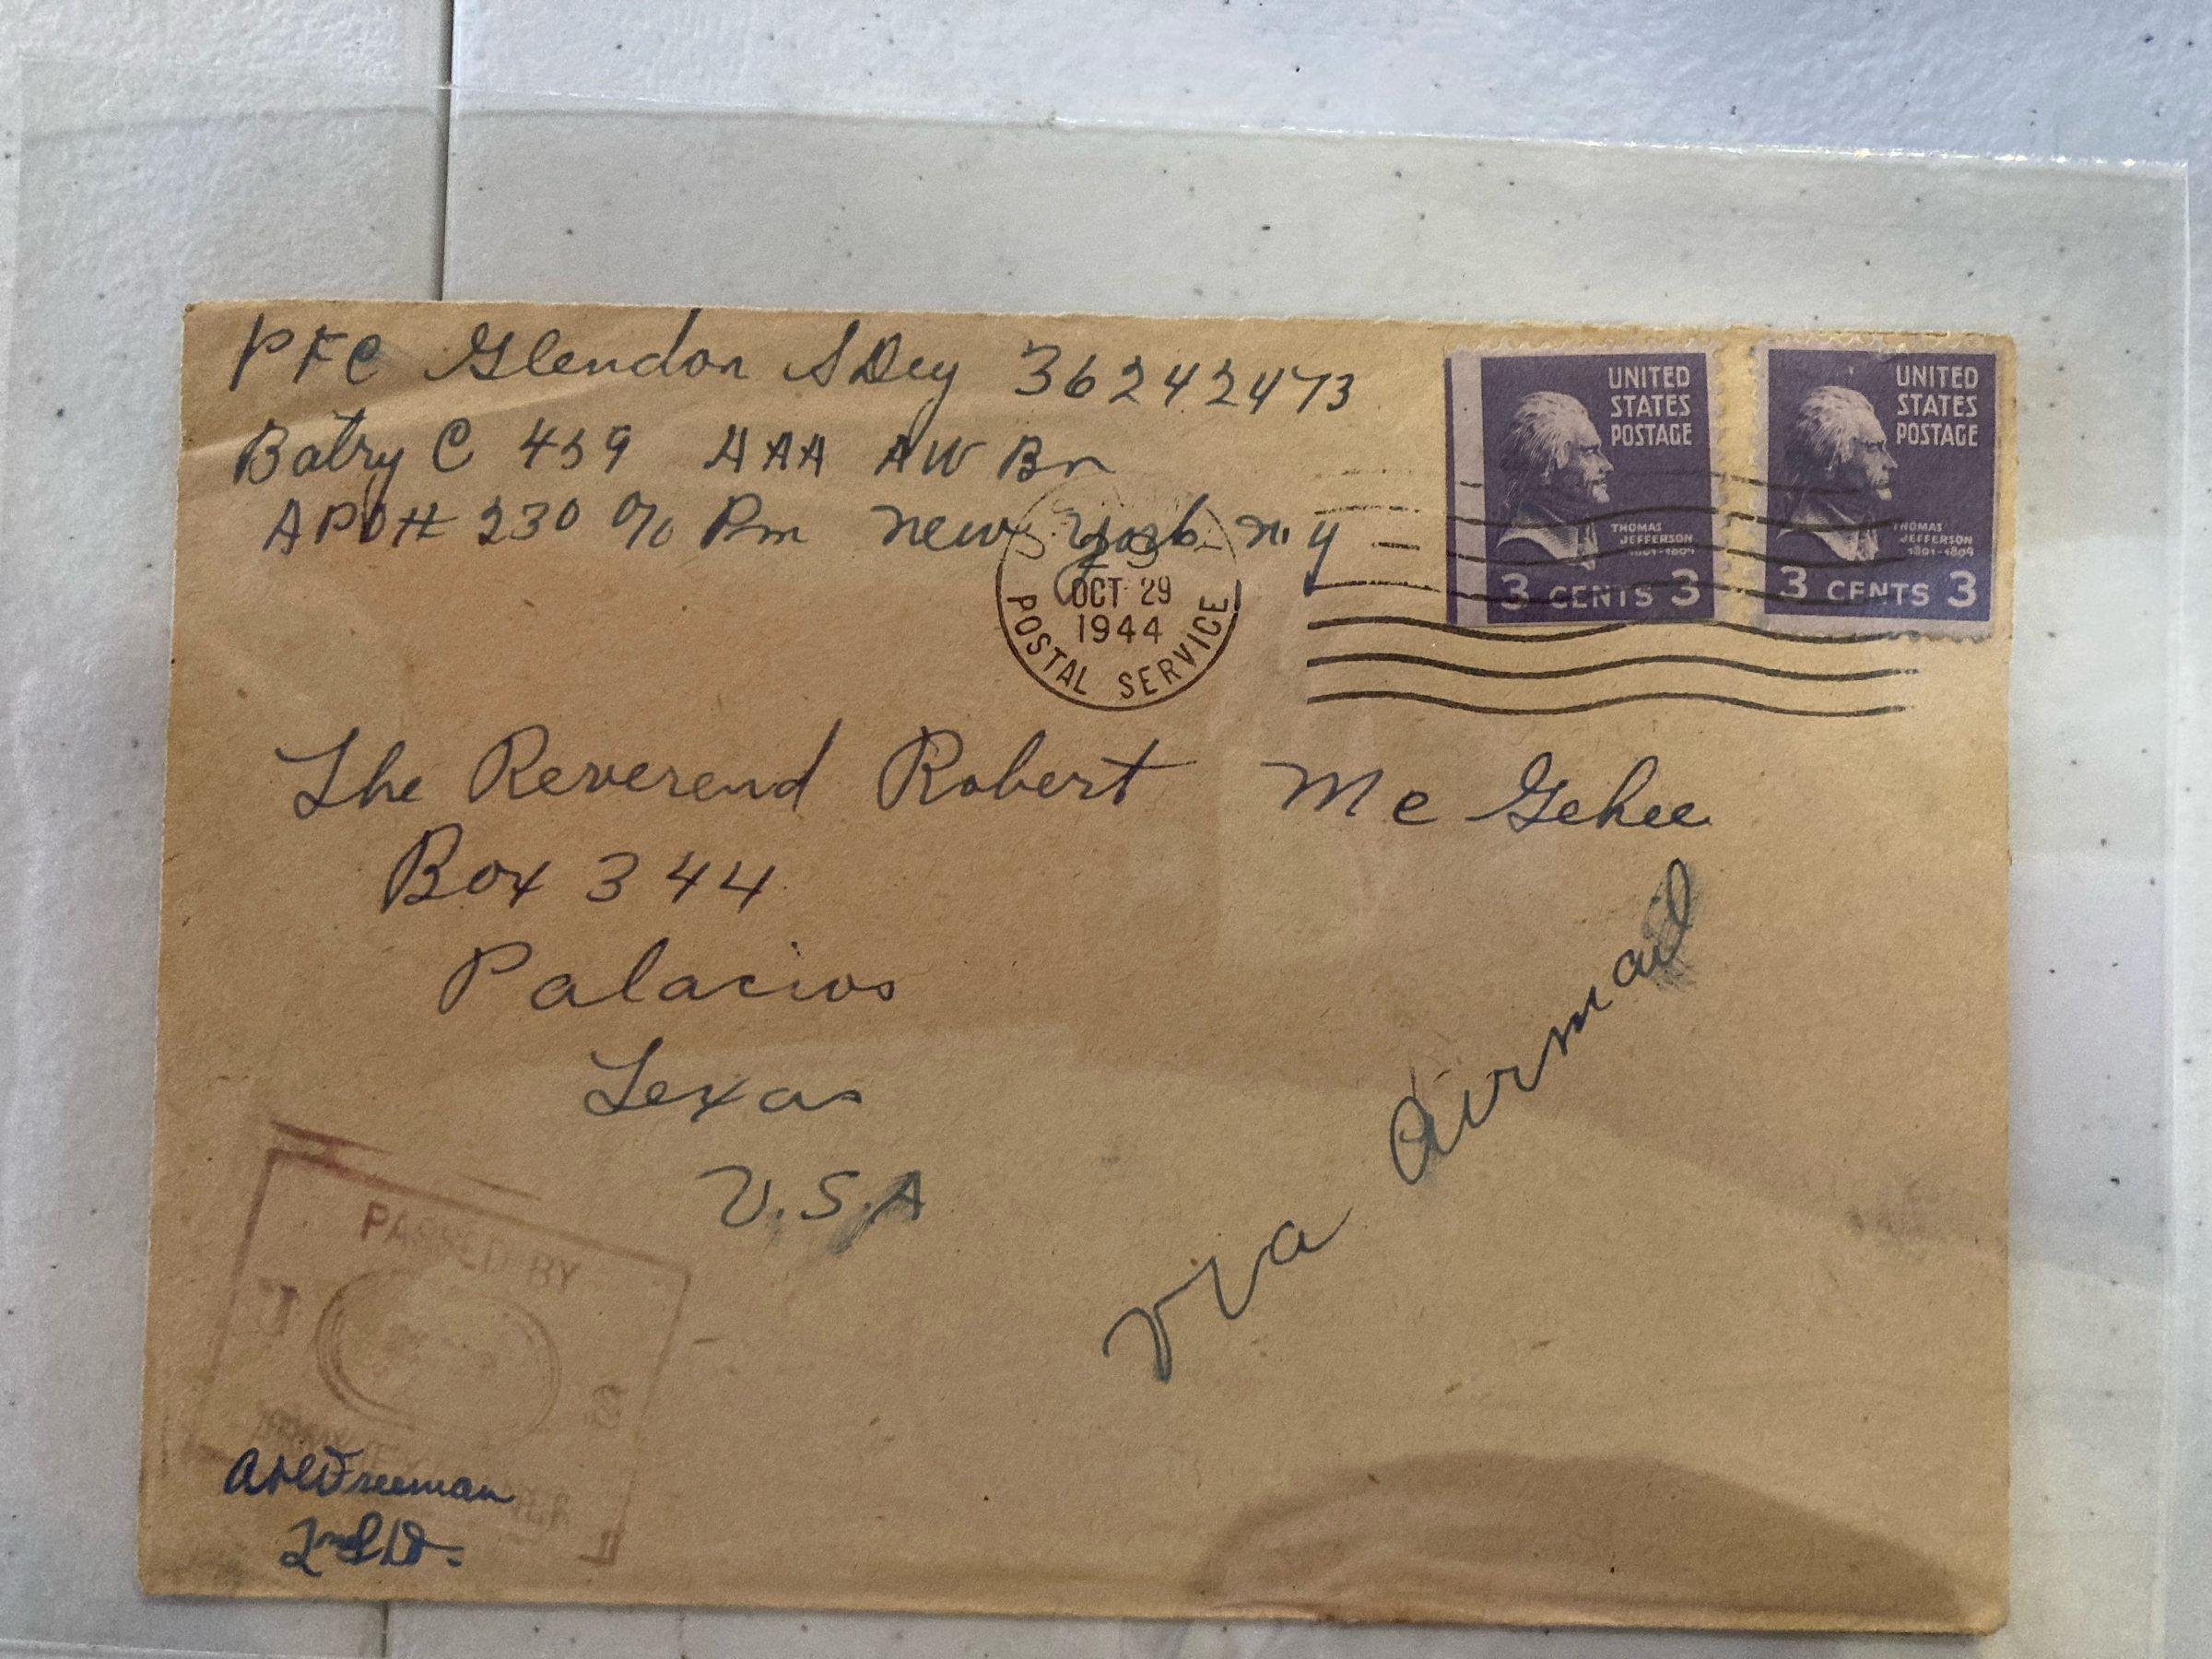 PFC Glendon S Dey 36242473
Batry C 459 AAA AW Bn
APO# 230 c/o Pm New York N.Y
UNITED
STATES
POSTAGE
THOMAS
JEFFERSON
1801-1809
3 CENTS 3
UNITED
STATES
POSTAGE
THOMAS
JEFFERSON
1801-1809
3 CENTS 3
OCT 29
1944
POSTAL SERVICE
The Reverend Robert Mc Gehee
Box 344
Palacios
Texas
U.S.A
Via Airmail
PASSED BY
U S
ARMY
Freeman
2nd Lt.